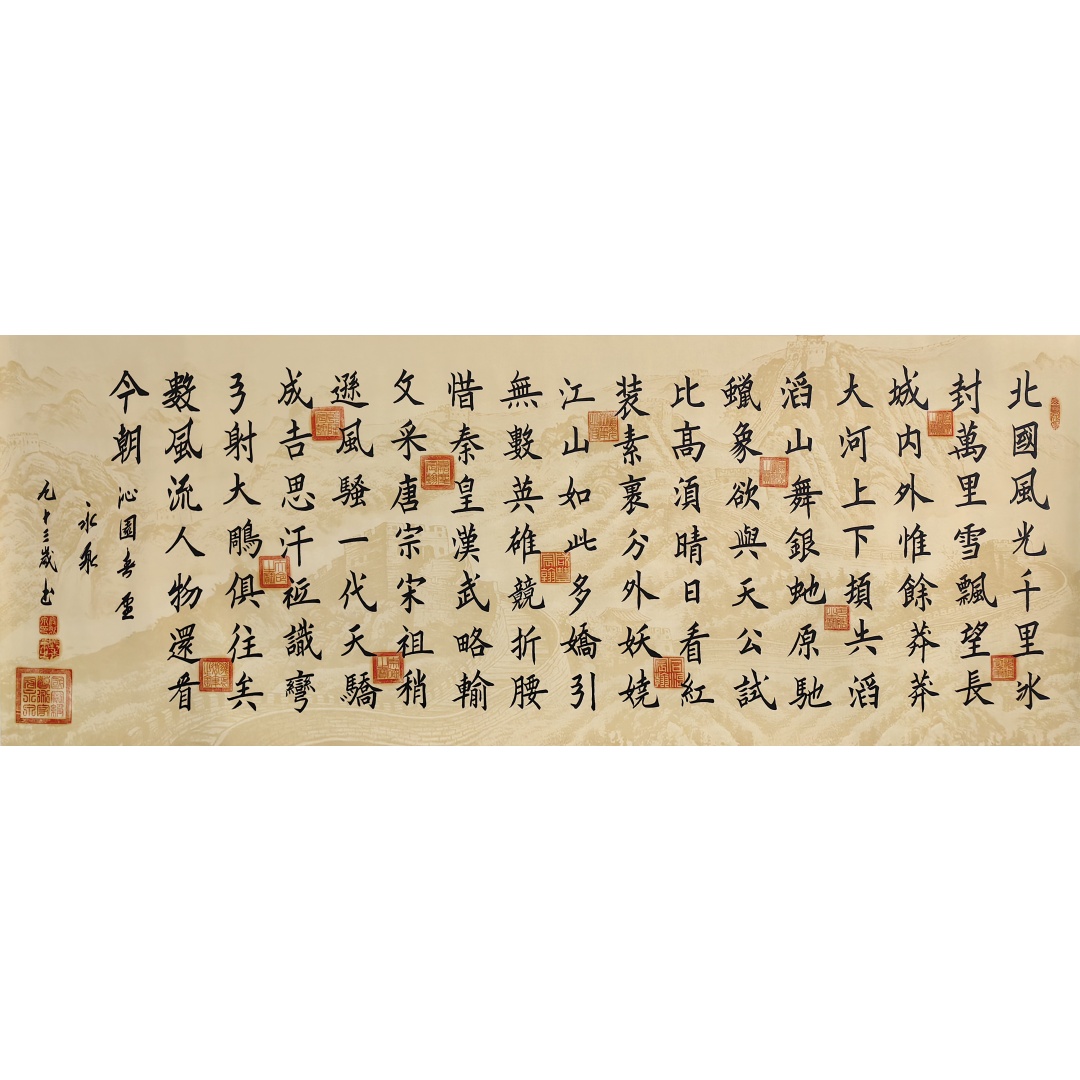 北國風光千里冰
封萬里雪飄望長
城内外惟餘莽莽
大河上下頓失滔
滔山舞銀虵原馳
蠟象欲與天公試
比高須晴日看紅
装素裹分外妖嬈
江山如此多嬌引
無數英雄競折腰
惜秦皇漢武略輸
文采唐宗宋祖稍
遜風騷一代天驕
成吉思汗祗識彎
弓射大鵰俱往矣
數風流人物還看
今朝
沁園春雪
永泉
九十三歲书